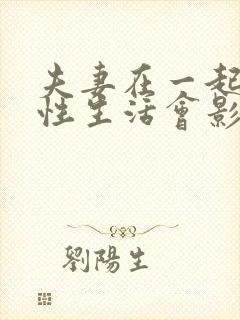 夫妻在一起
性生活會影
劉陽生